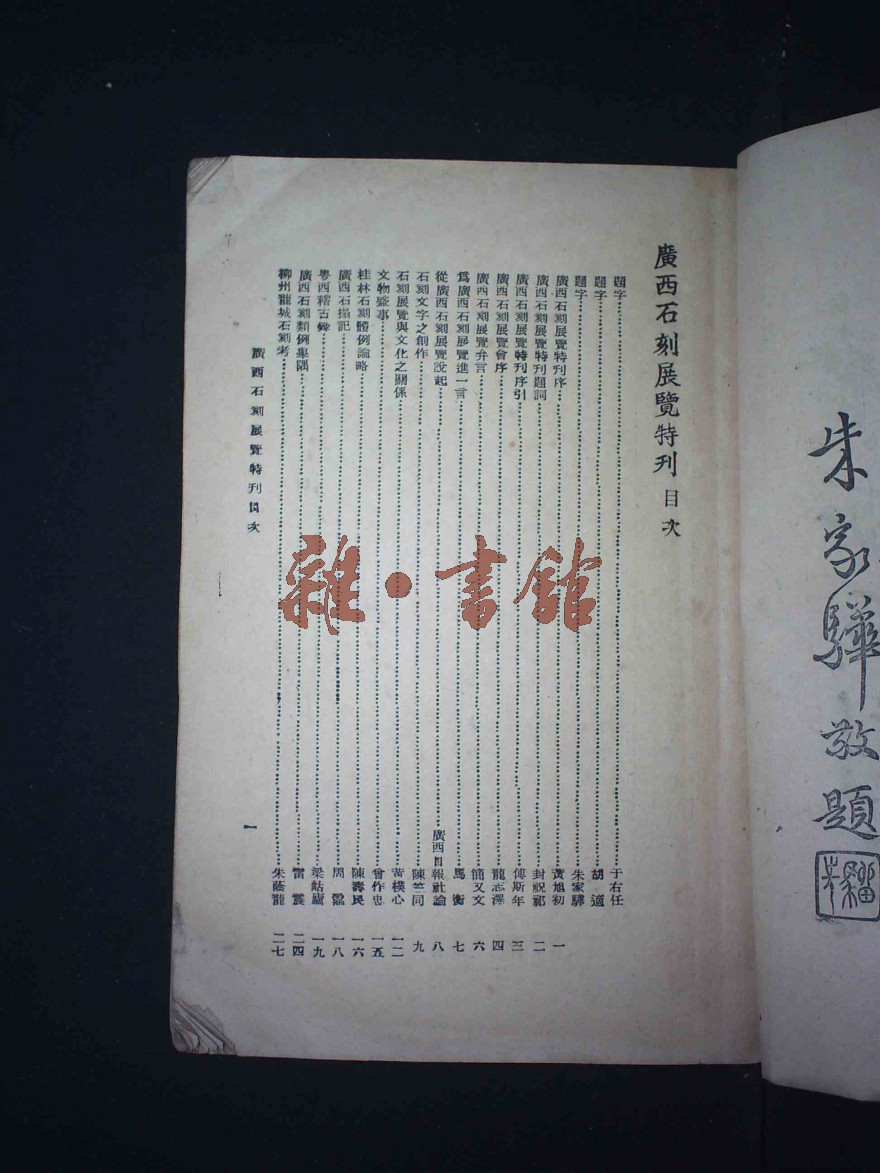 朱家驊敬題
廣西石刻展覽特刊 目次
題字 于右任
題字 胡適
題字 朱家驊
廣西石刻展覽特刊序 黃旭初 一
廣西石刻展覽特刊題詞 封祝祁 二
廣西石刻展覽特刊序引 傅斯年 三
廣西石刻展覽會序 龍志澤 四
廣西石刻展覽弁言 簡又文 六
為廣西石刻展覽進一言 馬衡 七
從廣西石刻展覽說起 廣西日報社論 八
石刻文字之創作 陳竺同 九
石刻展覽與文化之關係 黃樸心 一二
文物盛事 曾作忠 一五
桂林石刻體例論略 陳壽民 一六
廣西石搨記 周 一八
粵西稽古錄 梁岵廬 一九
廣西石刻類例舉隅 雷震 二四
柳州龍城石刻考 朱蔭龍 二七
廣西石刻展覽特刊目次
一
雜·書館